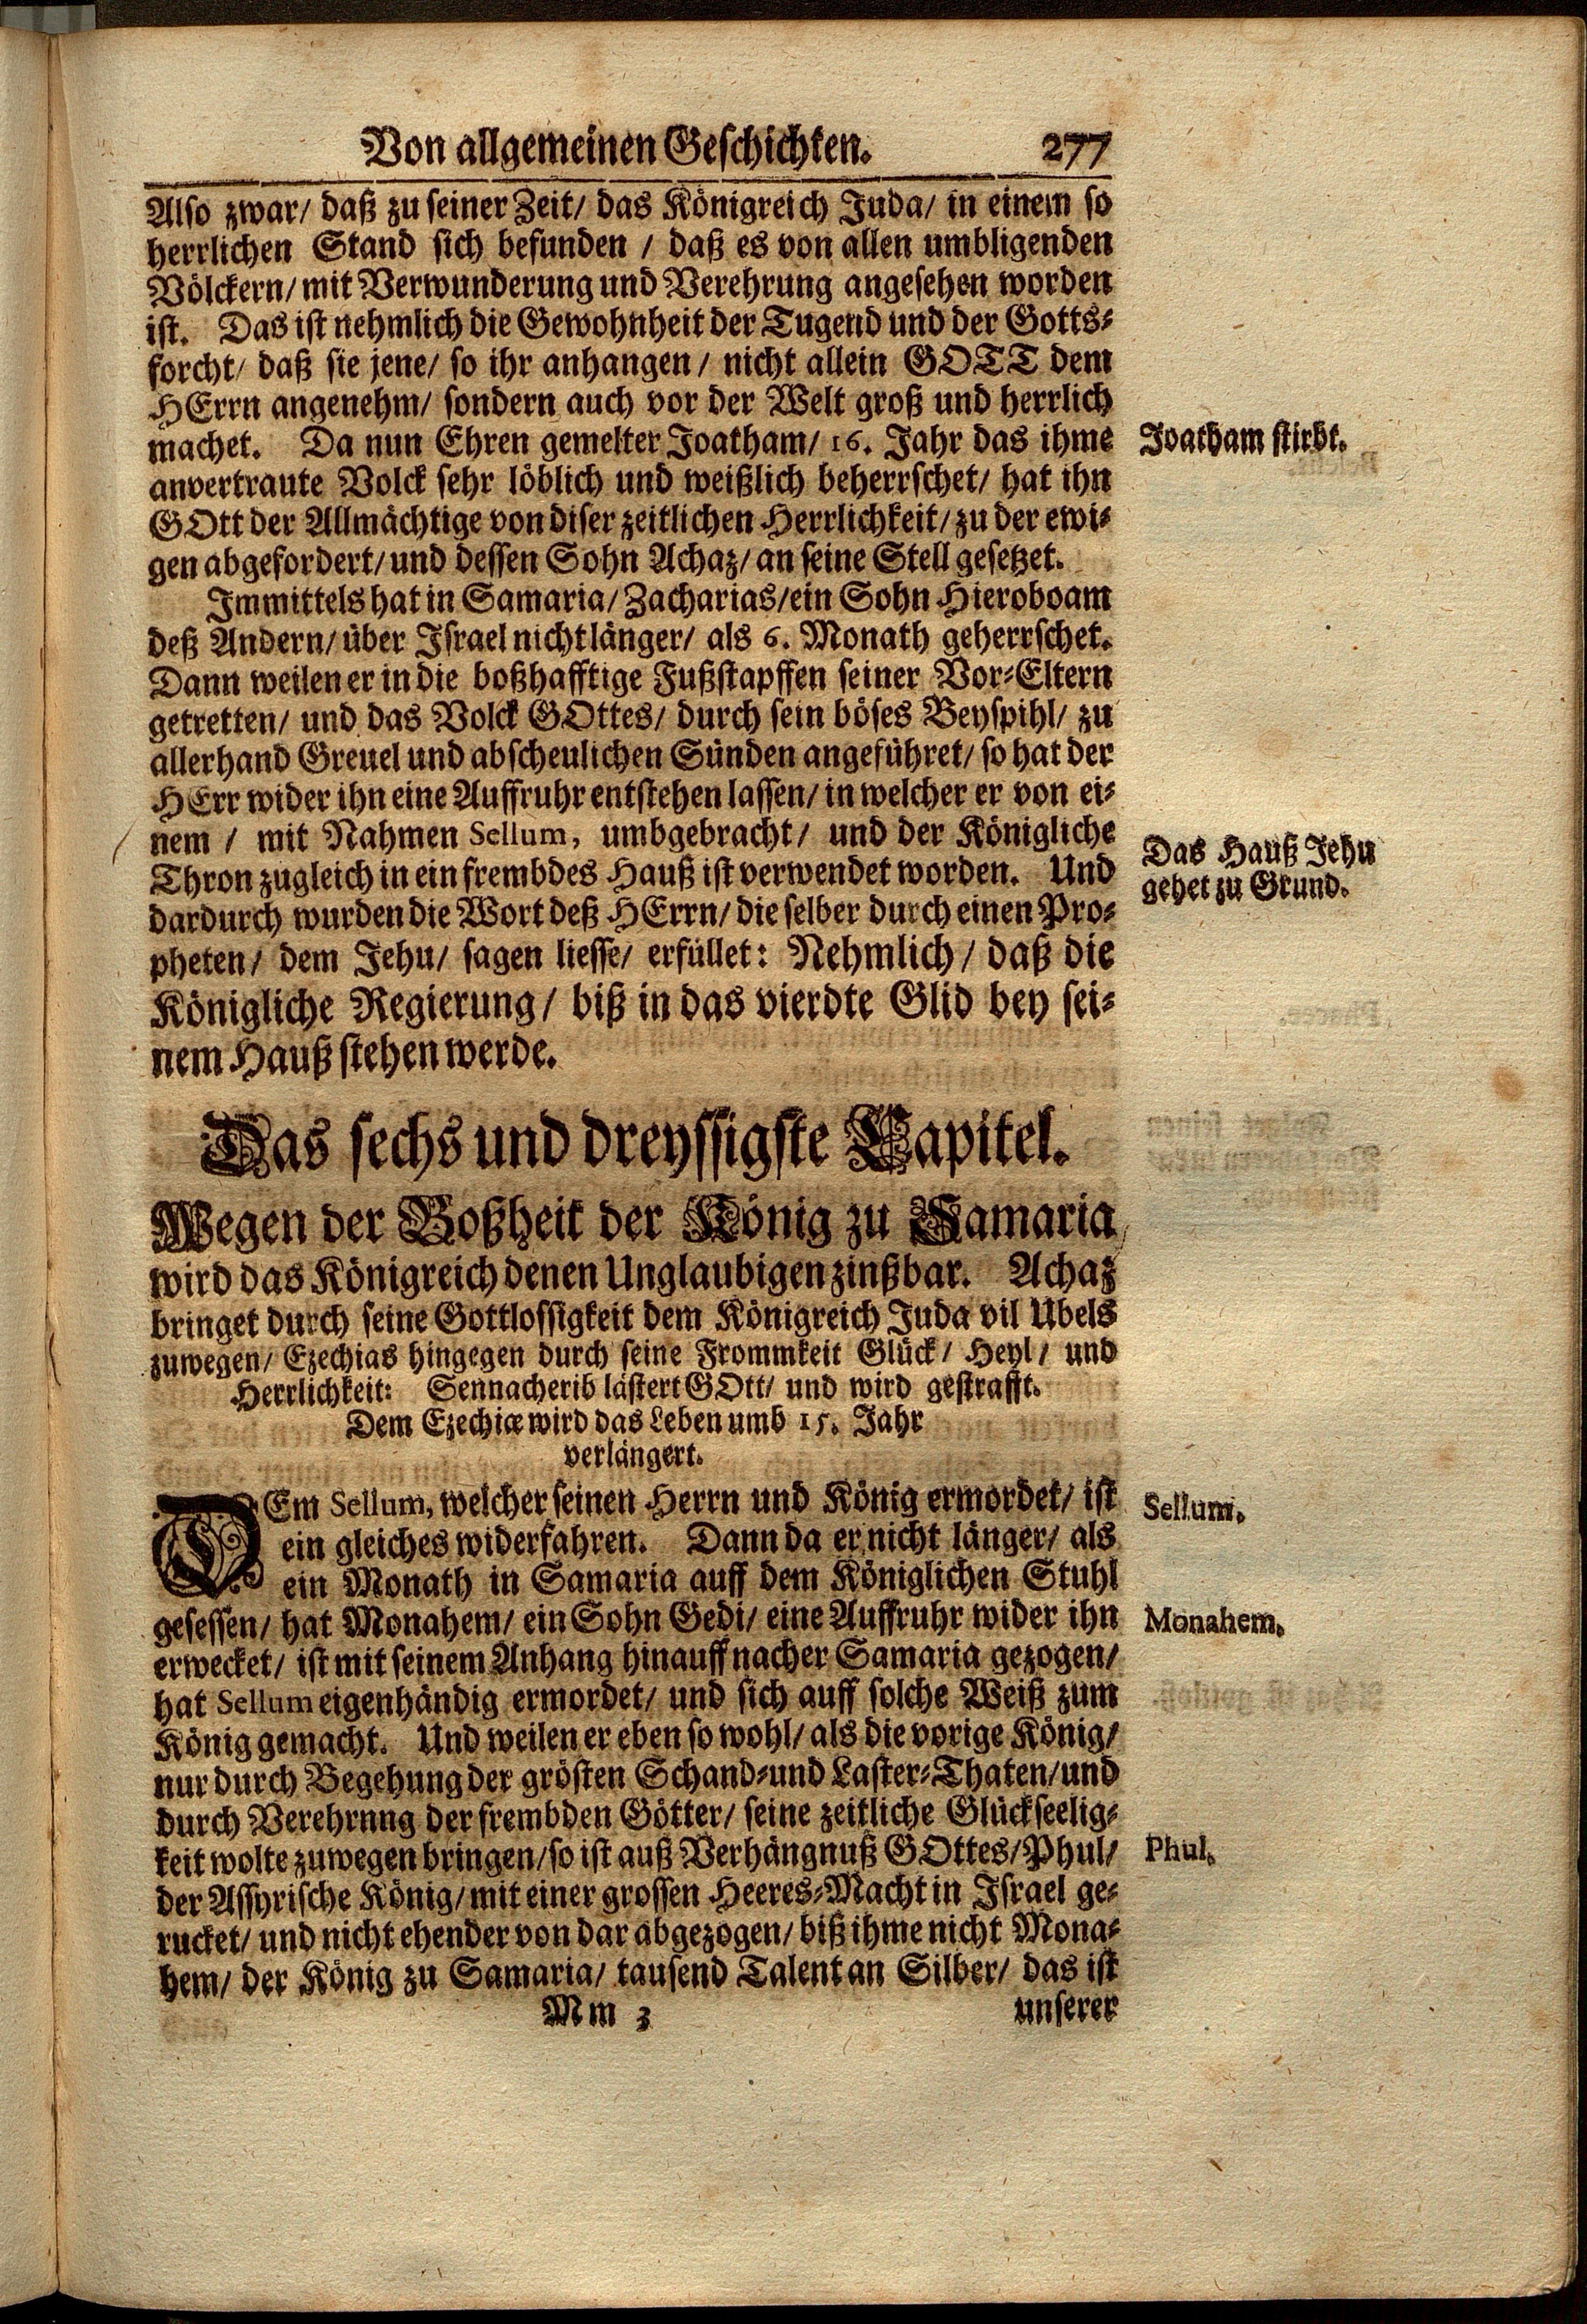 Von allgemeinen Geschichten. 277
Also zwar/ daß zu seiner Zeit/ das Königreich Juda/ in einem so
herrlichen Stand sich befunden / daß es von allen umbligenden
Völckern/ mit Verwunderung und Verehrung angesehen worden
ist. Das ist nehmlich die Gewohnheit der Tugend und der Gotts-
forcht/ daß sie jene/ so ihr anhangen / nicht allein GOTT dem
HErrn angenehm/ sondern auch vor der Welt groß und herrlich
machet. Da nun Ehren gemelter Joatham/ 16. Jahr das ihme
Joatham stirbt.
anvertraute Volck sehr löblich und weißlich beherrschet/ hat ihn
GOtt der Allmächtige von diser zeitlichen Herrlichkeit/ zu der ewi-
gen abgefordert/ und dessen Sohn Achaz/ an seine Stell gesetzet.
Immittels hat in Samaria/ Zacharias/ ein Sohn Hieroboam
deß Andern/ über Israel nicht länger/ als 6. Monath geherrschet.
Dann weilen er in die boßhafftige Fußstapffen seiner Vor-Eltern
getretten/ und das Volck GOttes/ durch sein böses Beyspihl/ zu
allerhand Greuel und abscheulichen Sünden angeführet/ so hat der
HErr wider ihn eine Auffruhr entstehen lassen/ in welcher er von ei-
nem / mit Nahmen Sellum, umbgebracht/ und der Königliche
Thron zugleich in ein frembdes Hauß ist verwendet worden. Und
Das Hauß Jehu
gehet zu Grund.
dardurch wurden die Wort deß HErrn/ die selber durch einen Pro-
pheten/ dem Jehu/ sagen liesse/ erfüllet: Nehmlich / daß die
Königliche Regierung / biß in das vierdte Glid bey sei-
nem Hauß stehen werde.
Das sechs und dreyssigste Capitel.
Wegen der Boßheit der König zu Samaria
wird das Königreich denen Unglaubigen zinßbar. Achaz
bringet durch seine Gottlossigkeit dem Königreich Juda vil Ubels
zuwegen/ Ezechias hingegen durch seine Frommkeit Glück/ Heyl/ und
Herrlichkeit: Sennacherib lästert GOtt/ und wird gestrafft.
Dem Ezechiæ wird das Leben umb 15. Jahr
verlängert.
DEm Sellum, welcher seinen Herrn und König ermordet/ ist
Sellum.
ein gleiches widerfahren. Dann da er nicht länger/ als
ein Monath in Samaria auff dem Königlichen Stuhl
gesessen/ hat Monahem/ ein Sohn Gedi/ eine Auffruhr wider ihn
Monahem.
erwecket/ ist mit seinem Anhang hinauff nacher Samaria gezogen/
hat Sellum eigenhändig ermordet/ und sich auff solche Weiß zum
König gemacht. Und weilen er eben so wohl/ als die vorige König/
nur durch Begehung der grösten Schand-und Laster-Thaten/ und
durch Verehrnng der frembden Götter/ seine zeitliche Glückseelig-
keit wolte zuwegen bringen/ so ist auß Verhängnuß GOttes/ Phul/
Phul.
der Assyrische König/ mit einer grossen Heeres-Macht in Israel ge-
rucket/ und nicht ehender von dar abgezogen/ biß ihme nicht Mona-
hem/ der König zu Samaria/ tausend Talent an Silber/ das ist
Mm 3 unserer